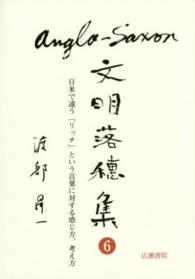 Anglo-Saxon
文明落穂集
6
日米で違う「リッチ」という言葉に対する感じ方、考え方
渡部昇一
広瀬書院